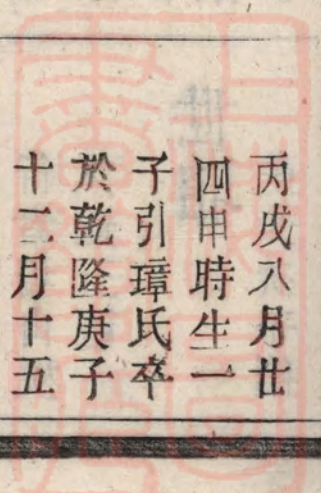 丙戌八月廿
四申時生一
子引璋氏卒
於乾隆庚子
十二月十五